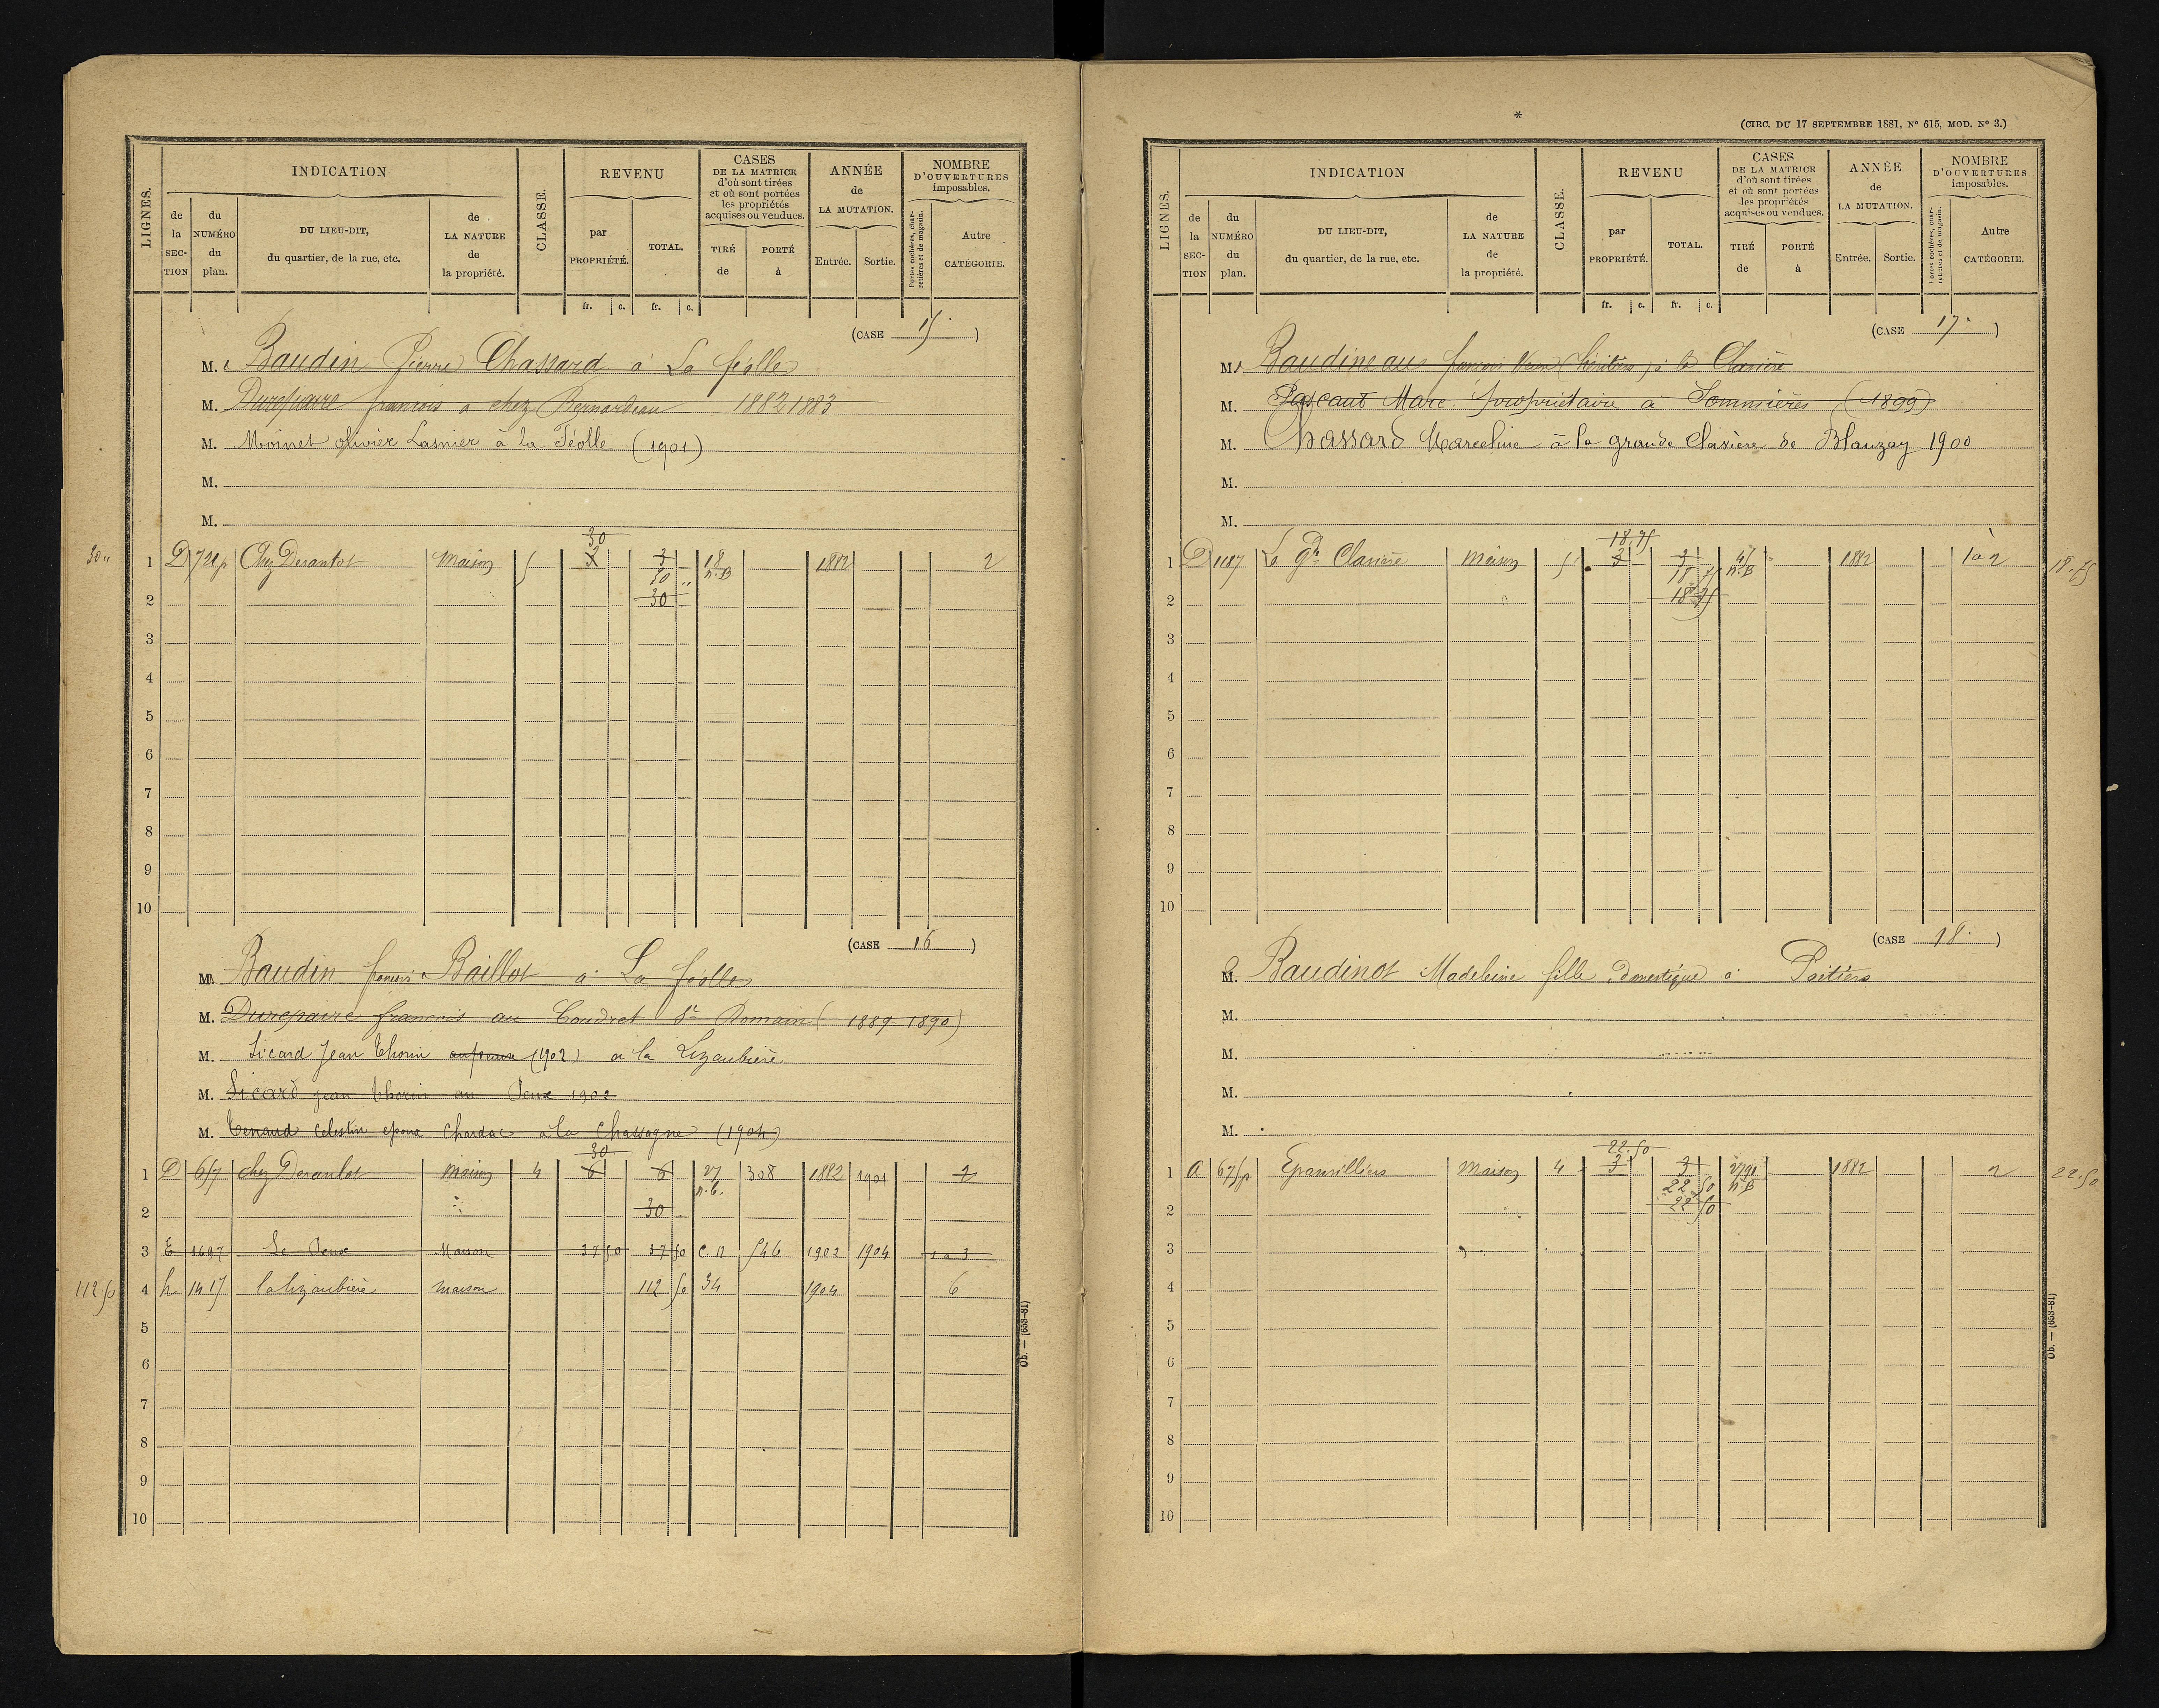 LIGNES.
INDICATION
CLASSE.
REVENU
CASES
DE LA MATRICE
d'où sont tirées
et où sont portées
les propriétés
acquises ou vendues.
ANNÉE
de
LA MUTATION.
NOMBRE
D'OUVERTURES
imposables.
de
la
SEC-
TION
du
NUMÉRO
du
plan.
DU LIEU-DIT,
du quartier, de la rue, etc.
de
LA NATURE
de
la propriété.
par
PROPRIÉTÉ.
TOTAL.
TIRÉ
de
PORTÉ
à
Entrée.
Sortie.
Portes cochères, char-
retières et de magasin.
Autre
CATÉGORIE.
fr. c. fr. c.
(CASE 15 )
M. Baudin Pierre Chassard à La féolle
M. Durepaire francois a chez Bernardeau 1882 1883
M. Moinet olivier Lasnier à la Féolle (1901)
M.
M.
30
30 " 1 D 721p Chez Derantot Maison 5 3 3 18 1882 2
30 " n.B
2 30
3
4
5
6
7
8
9
10
(CASE 16 )
M. Baudin francois Baillot a La féolle
M. Durepaire francois au Coudret St Romain (1889-1890)
M. Sicard Jean Thorin (1902) a la Lizaubière
M. Sicard jean thorin au Peux 1902
M. Tenaud Celestin epoux Chardac à la Chassagne (1904)
30
1 D 657 chez Derantot maison 4 6 6 27 308 1882 1901 2
2 30
3 E 1697 Le Peux Maison 37 50 37 50 C.N 546 1902 1904 1 a 3
112 50 4 h 1415 la lizaubière maison 112 50 34 1904 6
5
6
7
8
9
10
Ob. — (653-81)
*
(CIRC. DU 17 SEPTEMBRE 1881, No 615, MOD. No 3.)
LIGNES.
INDICATION
CLASSE.
REVENU
CASES
DE LA MATRICE
d'où sont tirées
et où sont portées
les propriétés
acquises ou vendues.
ANNÉE
de
LA MUTATION.
NOMBRE
D'OUVERTURES
imposables.
de
la
SEC-
TION
du
NUMÉRO
du
plan.
DU LIEU-DIT,
du quartier, de la rue, etc.
de
LA NATURE
de
la propriété.
par
PROPRIÉTÉ.
TOTAL.
TIRÉ
de
PORTÉ
à
Entrée.
Sortie.
Portes cochères, char-
retières et de magasin.
Autre
CATÉGORIE.
fr. c. fr. c.
(CASE 17 )
M. Baudineaus francois Veuve (héritiers) à la Clavière
M. Pascaut Marc propriétaire à Sommières (1899)
M. Chassard Marceline à la grande Clavière de Blanzay 1900
M.
M.
18.75
1 D 1187 La Gde Clavière maison 5 3 3 1882 1 à 2 18.75
18 75 n.B
2 18 75
3
4
5
6
7
8
9
10
(CASE 18 )
M. Baudinot Madeleine fille domestique à Poitiers
M.
M.
M.
M.
22.50
1 A 675p Epanvilliers maison 4 3 3 1882 2 22.50
22 50 n.B
2 22 50
3
4
5
6
7
8
9
10
Ob. — (653-81)